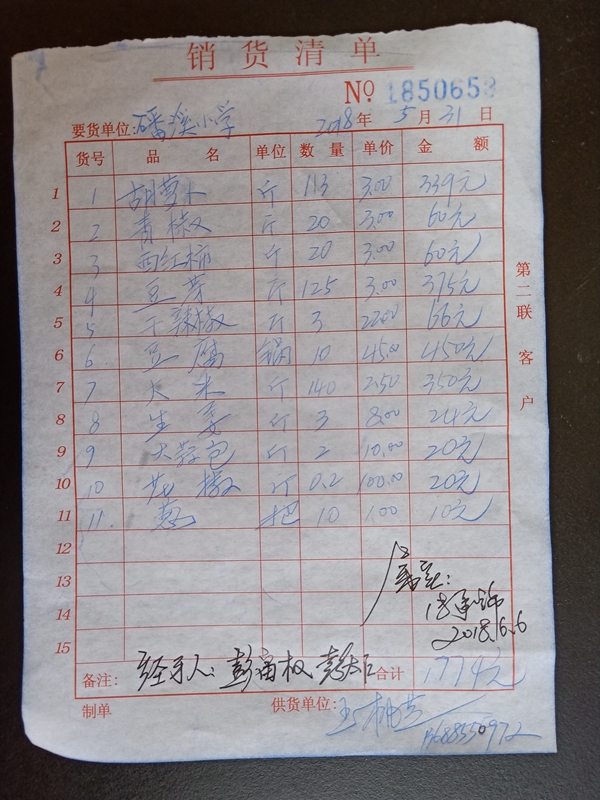 销货清单
No 1850653
要货单位:磻溪小学 2018年5月31日
货号 品名 单位 数量 单价 金额
1 1 胡萝卜 斤 113 3.00 339元
2 2 青椒 斤 20 3.00 60元
3 3 西红柿 斤 20 3.00 60元
4 4 豆芽 斤 125 3.00 375元
5 5 干辣椒 斤 3 22.00 66元
6 6 豆腐 锅 10 45.00 450元
7 7 大米 斤 140 2.50 350元
8 8 生姜 斤 3 8.00 24元
9 9 大蒜 斤 2 10.00 20元
10 10 花椒 斤 0.2 100.00 20元
11 11. 葱 把 10 1.00 10元
12
13
14
15
属实:
2018.6.6
备注: 经手人: 彭富权 合计 1774元
制单 供货单位:
第二联 客户